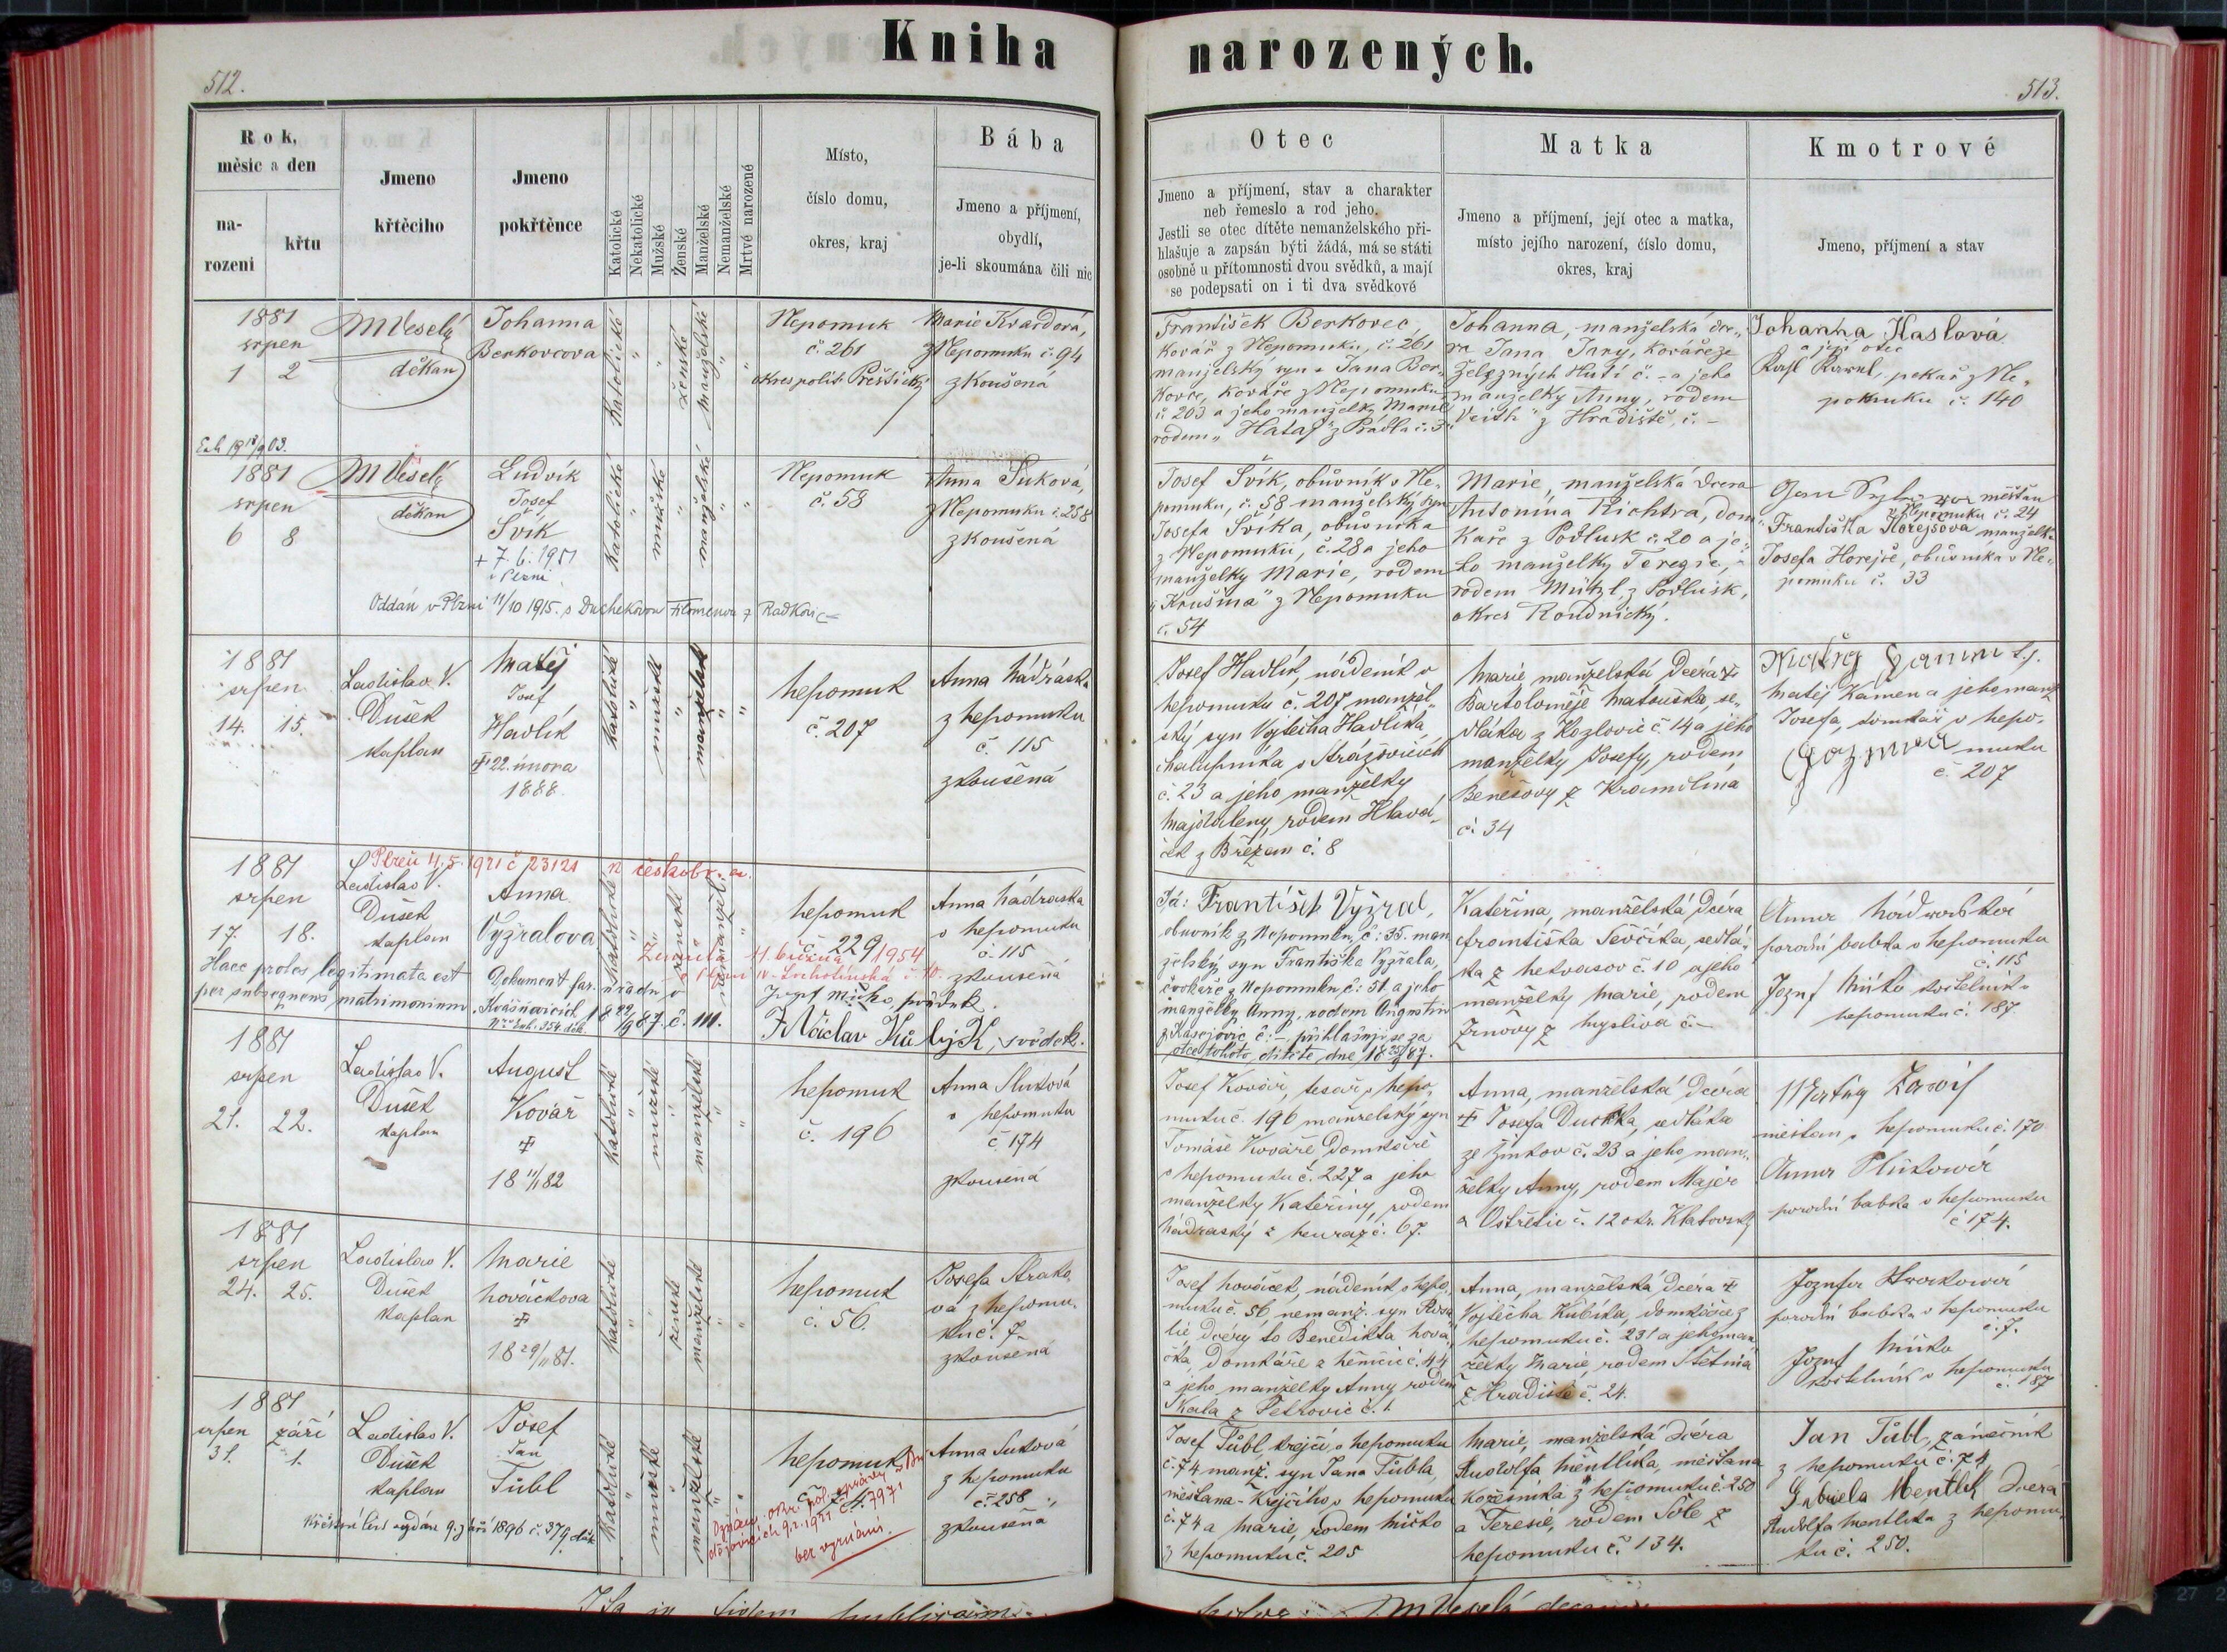 Kniha narozených.
512.
513.
Rok,
měsíc a den
na-
rozeni
křtu
Jmeno
křtěcího
Jmeno
pokřtěnce
Katolické
Nekatolické
Mužské
Ženské
Manželské
Nemanželské
Mrtvé narozené
Místo,
číslo domu,
okres, kraj
Bába
Jmeno a příjmení,
obydlí,
je-li skoumána čili nic
Otec
Jmeno a příjmení, stav a charakter
neb řemeslo a rod jeho.
Jestli se otec dítěte nemanželského při-
hlašuje a zapsán býti žádá, má se státi
osobně u přítomnosti dvou svědků, a mají
se podepsati on i ti dva svědkové
Matka
Jmeno a příjmení, její otec a matka,
místo jejího narození, číslo domu,
okres, kraj
Kmotrové
Jmeno, příjmení a stav
1881
srpen
1 2
MVeselý
děkan
Johanna
Berkovcova
katolické
ženské
manželské
Nepomuk
č. 261
okres polit. Přeštický
Marie Kvardová,
z Nepomuku č. 94
zkoušená
František Berkovec,
kovář z Nepomuku, č. 261
manželský syn Jana Ber-
kovce, kováře z Nepomuku
č. 203 a jeho manželky Marie
rodem „Hataj" z Prádla č. 3
Johanna, manželská dce-
ra Jana Jany, kováře ze
Železných Hutí č. - a jeho
manželky Anny, rodem
„Veith" z Hradiště, č. -
Johanna Haslová
a její otec
pekař z Ne-
pomuku č. 140
1881
srpen
6 8
MVeselý
děkan
Ludvík
Josef
Švík
+ 7. 6. 1951
v Plzni
katolické
mužské
manželské
Nepomuk
č. 58
Anna Suková,
z Nepomuku č. 258
zkoušená
Oddán v Plzni 11/10 1915. s Duchekovou Filomenou z Radkovic
Josef Švík, obůvník v Ne-
pomuku, č. 58 manželský syn
Josefa Švíka, obůvníka
z Nepomuku, č. 28 a jeho
manželky Marie, rodem
„Krušina" z Nepomuku
č. 54
Marie, manželská dcera
Antonína Richtra, dom-
káře z Podlusk č. 20 a je-
ho manželky Terezie,
rodem Mützl, z Podlusk,
okres Roudnický.
měšťan
v Nepomuku č. 24
Františka Hořejšova manželka
Josefa Hořejše, obůvníka v Ne-
pomuku č. 33
1881
srpen
14. 15.
Ladislav V.
Dušek
kaplan
Matěj
Josef
Hadlík
22. února
1888.
katolické
mužské
manželské
Nepomuk
č. 207
Anna Nádraská
z Nepomuku
č. 115
zkoušená
Josef Hadlík, nádeník v
Nepomuku č. 207 manžel-
ský syn Vojtěcha Hadlíka,
chalupníka v Strážovicích
č. 23 a jeho manželky
Majdaleny, rodem Hlavá-
ček z Březan č. 8
Marie manželská dcéra
Bartoloměje Matouška, se-
dláka z Kozlovic č. 14 a jeho
manželky Josefy, rodem
Benešovy z Kramolína
č. 34
Matěj Kámen a jeho manž.
Josefa, domkář v Nepo-
muku
č. 207
Plzeň 4. 5. 1921 č. 23121
1881
srpen
17. 18.
Ladislav V.
Dušek
kaplan
Anna
Vyžralova
katolické
ženské
Nepomuk
č. 229
Anna Nádraska
v Nepomuku
č. 115
zkoušená
Zemřela 11. března 1954
Haec proles legitimata est
per subsequens matrimonium.
Dokument far. úřadu v
č. 111.
Josef Míčko, svědek.
Václav Kubijk, svědek.
Já: František Vyžral,
obuvník z Nepomuku, č. 35. man-
želský syn Františka Vyžrala,
cvokaře z Nepomuku č. 51. a jeho
manželky Anny, rodem Augustin
z Kasejovic č. - přihlašuji se za
otce tohoto dítěte dne
Kateřina, manželská dcéra
Františka Ševčíka, sedlá-
ka z Hetvasov č. 10 a jeho
manželky Marie, rodem
z Mysliva č. -
Anna Nádraská
porodní babka v Nepomuku
č. 115
Josef Míčko kostelník v
Nepomuku č. 187
1881
srpen
21. 22.
Ladislav V.
Dušek
kaplan
August
Kovář
18 11/1 82
katolické
mužské
manželské
Nepomuk
č. 196
Anna Sluková
v Nepomuku
č. 174
zkoušená
Josef Kovář, tesař v Nepo-
muku č. 196 manželský syn
Tomáše Kováře domkáře
v Nepomuku č. 227 a jeho
manželky Kateřiny, rodem
Nádraský z Neuraz č. 67.
Anna, manželská dcéra
Josefa Duchka, sedláka
ze Žinkov č. 23 a jeho man-
želky Anny, rodem Majer
z Ostřetic č. 12 okr. Klatovský
měšťan v Nepomuku č. 170
porodní babka v Nepomuku
č. 174.
1881
srpen
24. 25.
Ladislav V.
Dušek
kaplan
Marie
Nováčkova
18 29/11 81.
katolické
ženské
manželské
Nepomuk
č. 56.
Josefa Strako-
vá z Nepomu-
ku č. 7.
zkoušená
Josef Nováček, nádeník v Nepo-
muku č. 56, nemanž. syn Rosa-
lie, dcéry to Benedikta Nová-
čka, domkáře z Němčic č. 44
a jeho manželky Anny rodem
Skala z Petrovic č. 1.
Anna, manželská dcéra
Vojtěcha Kubíska, domkáře z
Nepomuku č. 231 a jeho man-
želky Marie, rodem Štětina
z Hradiště č. 24.
Josefa Strakowá
porodní babka v Nepomuku
č. 7.
Josef Míčko
kostelník v Nepomuku
č. 187
1881
srpen září
31. 1.
Ladislav V.
Dušek
kaplan
Josef
Jan
Tůbl
katolické
mužské
manželské
Nepomuk
č. 74.
Anna Suková
z Nepomuku
č. 258
zkoušena
bez vyznání.
Křestní list vydán 9. září 1896 č. 374 děk
Josef Tůbl, krejčí v Nepomuku
č. 74 manž. syn Jana Tůbla,
měšťana-krejčího v Nepomuku
č. 74 a Marie, rodem Míčko
z Nepomuku č. 205
Marie, manželská dcéra
Rudolfa Mentlíka, měšťana
kožešníka z Nepomuku č. 250
a Teresie, rodem Šole z
Nepomuku č. 134.
Jan Tůbl, zámečník
z Nepomuku č. 74
Gabriela Mentlík dcéra
Rudolfa Mentlíka z Nepomu-
ku č. 250.